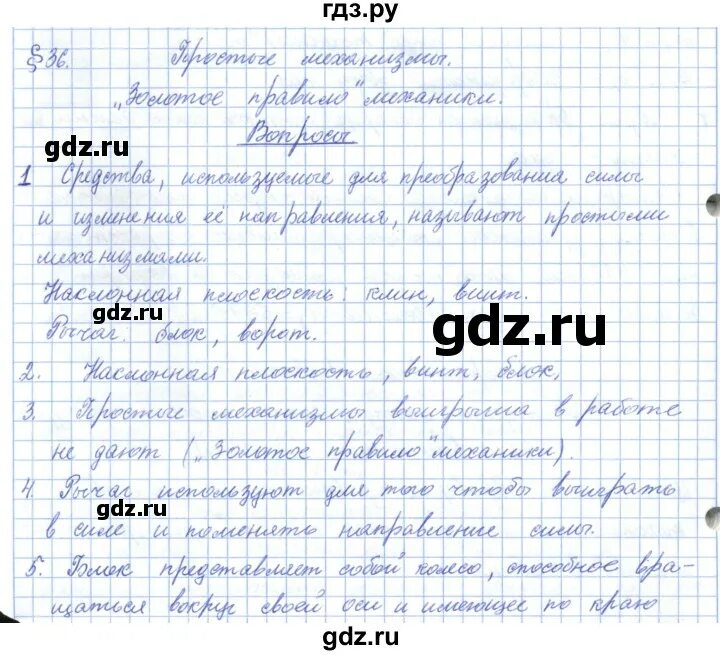 гдз.ру
§36. Простые механизмы.
„Золотое правило" механики.
Вопросы
gdz.ru
1 Средства, используемые для преобразования силы
и изменения её направления, называют простыми
механизмами.
Наклонная плоскость: клин, винт.
gdz.ru
Рычаг: блок, ворот.
2. Наклонная плоскость, винт, блок,
3. Простые механизмы выигрыша в работе
не дают („Золотое правило" механики).
gdz.ru
4. Рычаг используют для того чтобы выиграть
в силе и поменять направление силы.
5. Блок представляет собой колесо, способное вра-
щаться вокруг своей оси и имеющее по краю
gdz.ru
gdz.ru